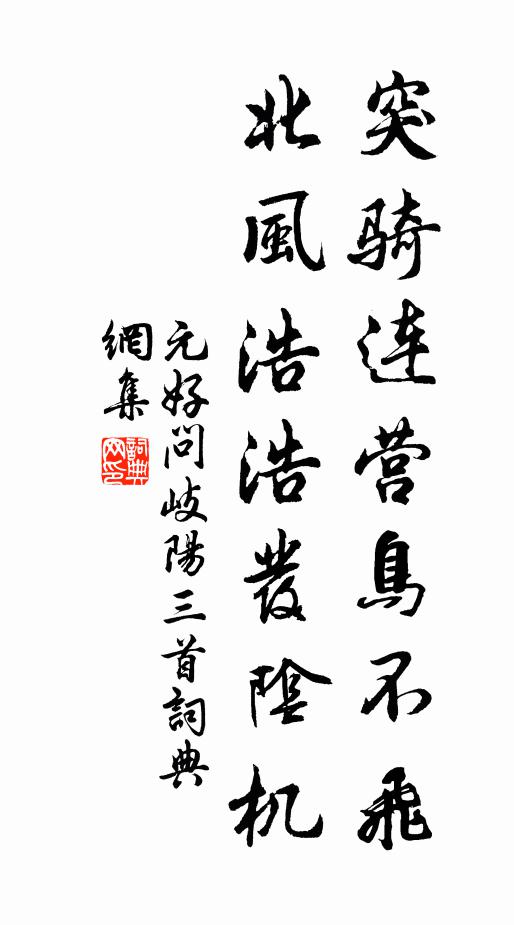 突骑连营鸟不飛
北風浩浩發陰机
元好问岐陽三首詞典
網集
詞典网印